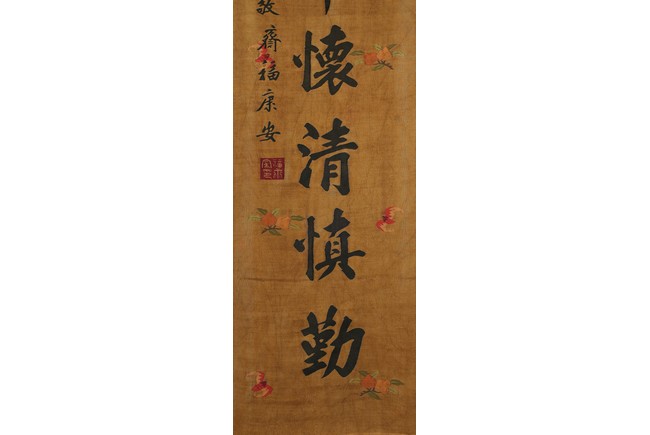 懷清慎勤
敬齋福康安